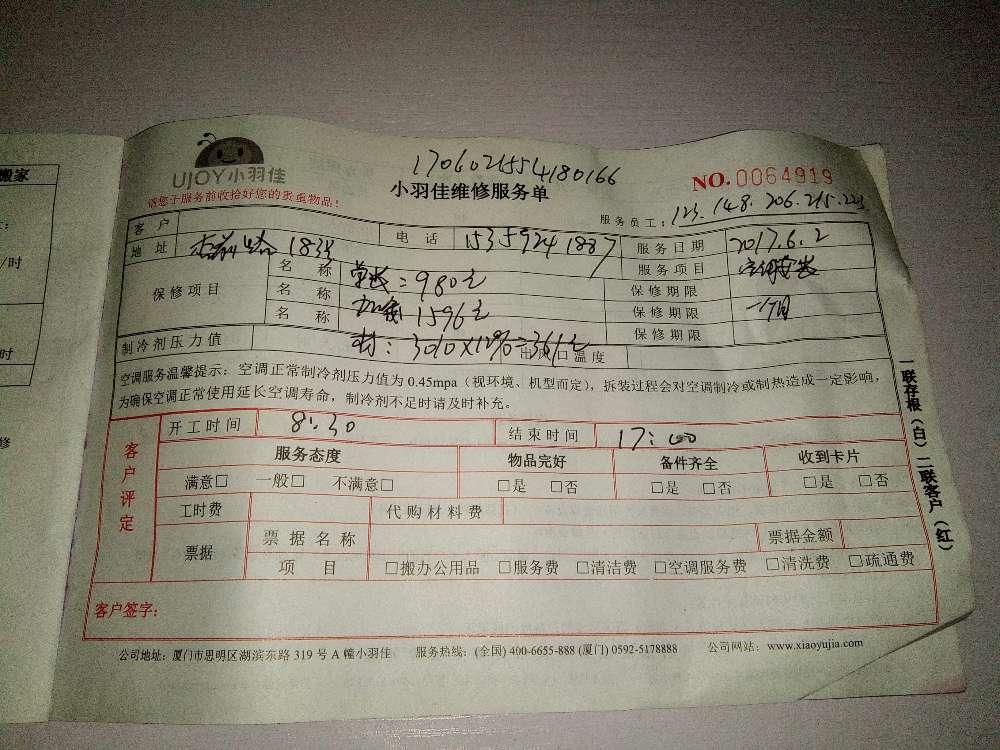 搬家
/时
时
修
UJOY小羽佳
1706021554180166
NO.0064919
请您于服务前收拾好您的贵重物品！
小羽佳维修服务单
服务员工：123.148.206.215.223
客户 电话 15359241887 服务日期 2017.6.2
地址 183号 服务项目
保修项目 名称 :980元 保修期限
名称 1596元 保修期限 一个月
名称 保修期限
制冷剂压力值 材:3010X12%=361元 出风口温度
空调服务温馨提示：空调正常制冷剂压力值为 0.45mpa（视环境、机型而定），拆装过程会对空调制冷或制热造成一定影响，
为确保空调正常使用延长空调寿命，制冷剂不足时请及时补充。
客户评定
开工时间 8:30 结束时间 17:00
服务态度 物品完好 备件齐全 收到卡片
满意□ 一般□ 不满意□ □是 □否 □是 □否 □是 □否
工时费 代购材料费
票据 票据名称 票据金额
项目 □搬办公用品 □服务费 □清洁费 □空调服务费 □清洗费 □疏通费
客户签字：
一联存根（白）二联客户（红）
公司地址：厦门市思明区湖滨东路 319 号 A 幢小羽佳 服务热线：(全国) 400-6655-888 (厦门) 0592-5178888 公司网站：www.xiaoyujia.com